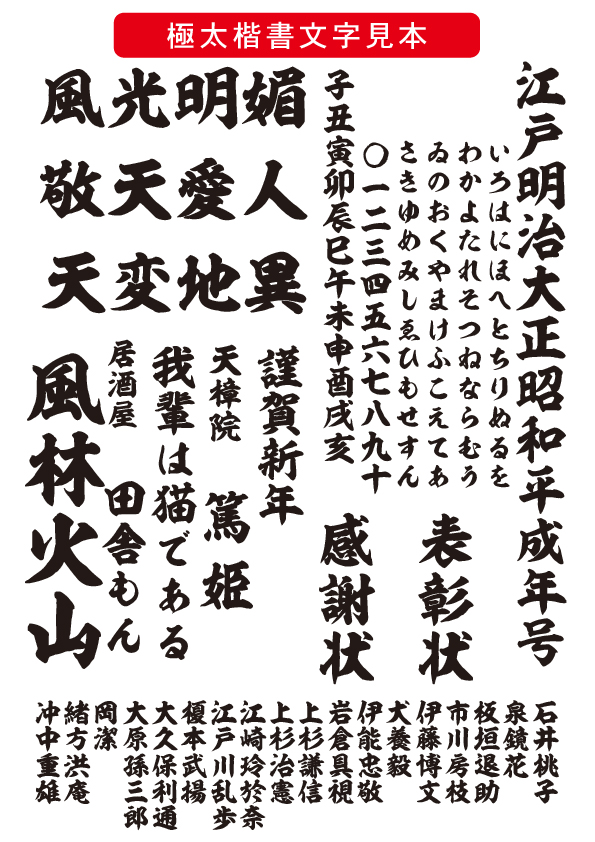 極太楷書文字見本
江戸明治大正昭和平成年号
いろはにほへとちりぬるを
わかよたれそつねならむう
ゐのおくやまけふこえてあ
さきゆめみしゑひもせすん
〇一二三四五六七八九十
子丑寅卯辰巳午未申酉戌亥
表彰状
感謝状
媚人異
明愛地
光天変
風敬天
謹賀新年
天樟院 篤姫
我輩は猫である
居酒屋 田舎もん
風林火山
石井桃子
泉鏡花
板垣退助
市川房枝
伊藤博文
犬養毅
伊能忠敬
岩倉具視
上杉謙信
上杉治憲
江崎玲於奈
江戸川乱歩
榎本武揚
大久保利通
大原孫三郎
岡潔
緒方洪庵
沖中重雄